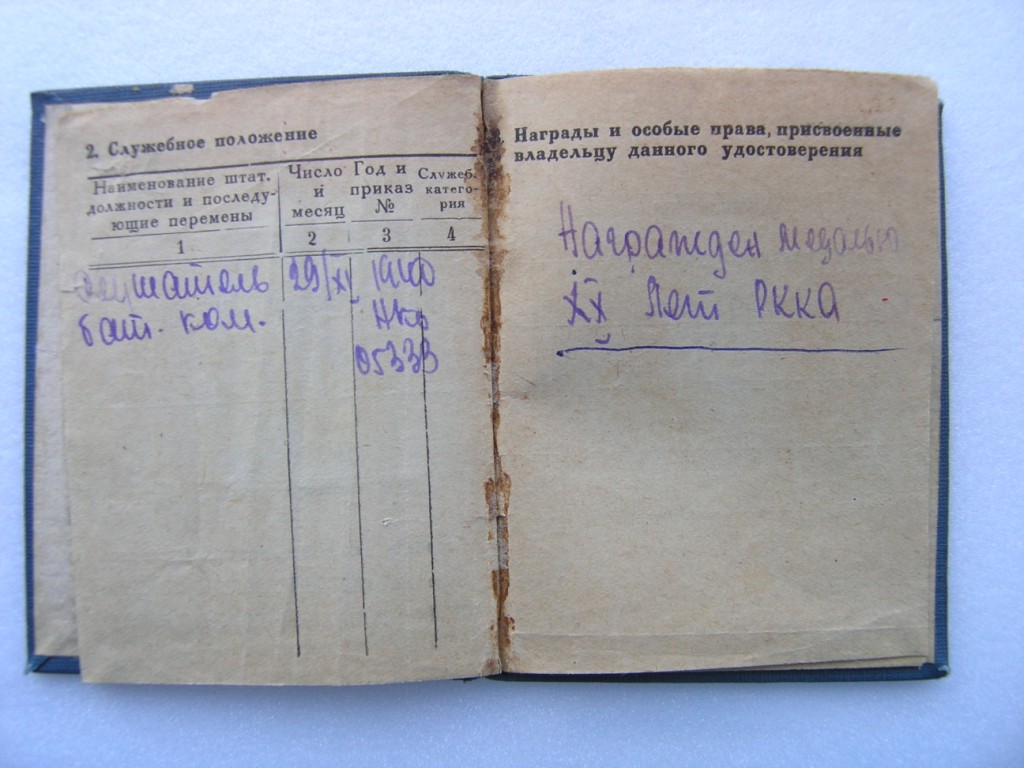 2. Служебное положение
Наименование штат. должности и последу-
ющие перемены
Число и месяц
Год и приказ №
Служеб. катего-
рия
1 2 3 4
слушатель 29/XI 1940
бат. ком. НКО
05333
Награды и особые права, присвоенные
владельцу данного удостоверения
Награжден медалью
XX Лет РККА